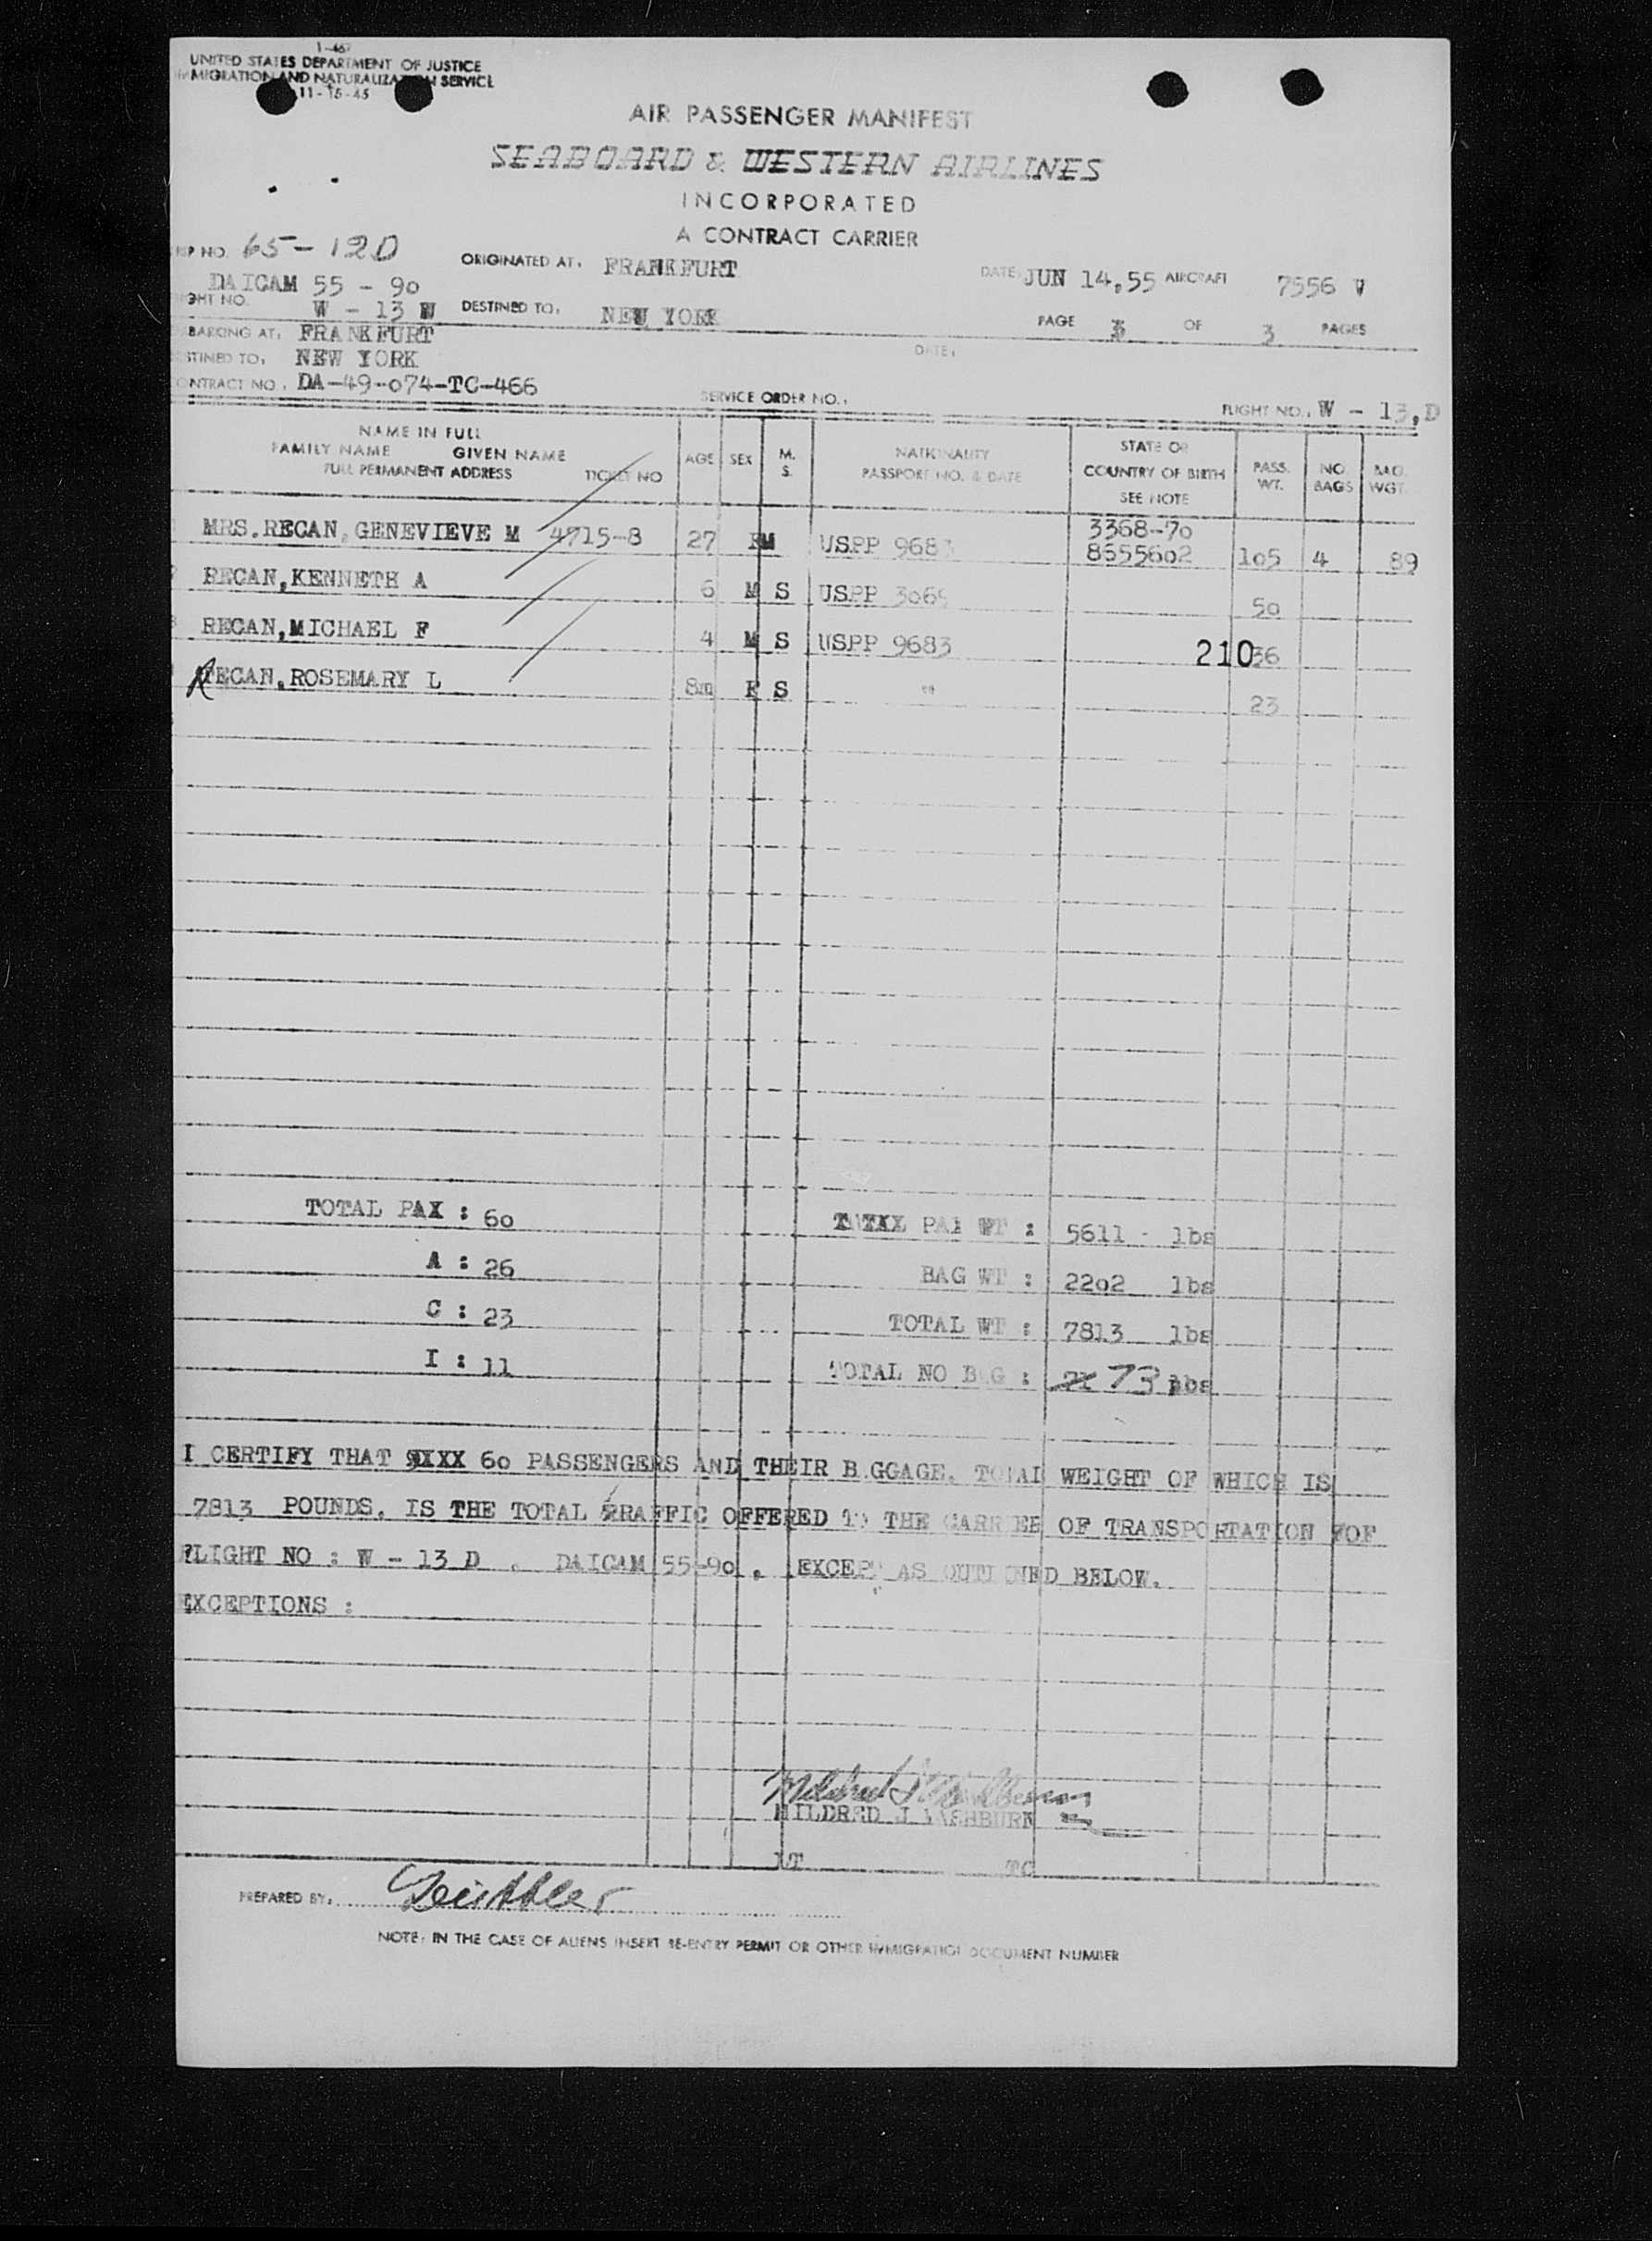 1-467
UNITED STATES DEPARTMENT OF JUSTICE
IMMIGRATION AND NATURALIZATION SERVICE
11-15-45
AIR PASSENGER MANIFEST
SEABOARD & WESTERN AIRLINES
INCORPORATED
A CONTRACT CARRIER
NO. 65-12D ORIGINATED AT, FRANKFURT DATE, JUN 14,55 AIRCRAFT 7556 V
DAICAM 55 - 90
GHT NO. W - 13 DESTINED TO, NEW YORK PAGE 3 OF 3 PAGES
BARKING AT, FRANKFURT
STINED TO, NEW YORK DATE,
ONTRACT NO, DA-49-074-TC-466 SERVICE ORDER NO., FLIGHT NO., W - 13,D
NAME IN FULL
FAMILY NAME GIVEN NAME
FULL PERMANENT ADDRESS TICKET NO AGE SEX M. S. NATIONALITY PASSPORT NO. & DATE STATE OR COUNTRY OF BIRTH SEE NOTE PASS. WT. NO. BAGS BAG. WGT.
MRS.RECAN,GENEVIEVE M 4715-8 27 FM USPP 9683 3368-70 8655602 105 4 89
RECAN,KENNETH A 6 M S USPP 3069 50
RECAN,MICHAEL F 4 M S USPP 9683 21036
RECAN,ROSEMARY L 8m F S " 23
TOTAL PAX : 60 PAX WT : 5611 - lbs
A : 26 BAG WT : 2202 lbs
C : 23 TOTAL WT : 7813 lbs
I : 11 TOTAL NO BAG : 73 lbs
I CERTIFY THAT 60 PASSENGERS AND THEIR BAGGAGE, TOTAL WEIGHT OF WHICH IS
7813 POUNDS, IS THE TOTAL TRAFFIC OFFERED TO THE CARRIER OF TRANSPORTATION FOR
FLIGHT NO : W - 13 D , DAICAM 55-90 , EXCEPT AS OUTLINED BELOW.
EXCEPTIONS :
Mildred J Washburn
MILDRED J WASHBURN
LT TC
PREPARED BY,
NOTE: IN THE CASE OF ALIENS INSERT RE-ENTRY PERMIT OR OTHER IMMIGRATION DOCUMENT NUMBER